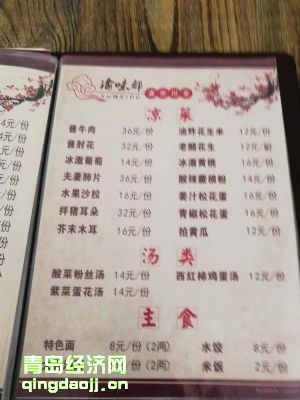 渝味都
YUWEIDU
凉菜
酱牛肉 36元/份 油炸花生米 12元/份
酱肘花 32元/份 老醋花生 12元/份
冰激葡萄 14元/份 冰激黄桃 16元/份
夫妻肺片 36元/份 酸辣蕨根粉 14元/份
水果沙拉 16元/份 姜汁松花蛋 16元/份
拌猪耳朵 32元/份 青椒松花蛋 16元/份
芥末木耳 16元/份 拍黄瓜 12元/份
汤类
酸菜粉丝汤 14元/份 西红柿鸡蛋汤 12元/份
紫菜蛋花汤 14元/份
主食
特色面 8元/份(2两) 水饺 8元/份
元/份(2两) 米饭 2元/份
青岛经济网
qingdaojj.cn
4元/份